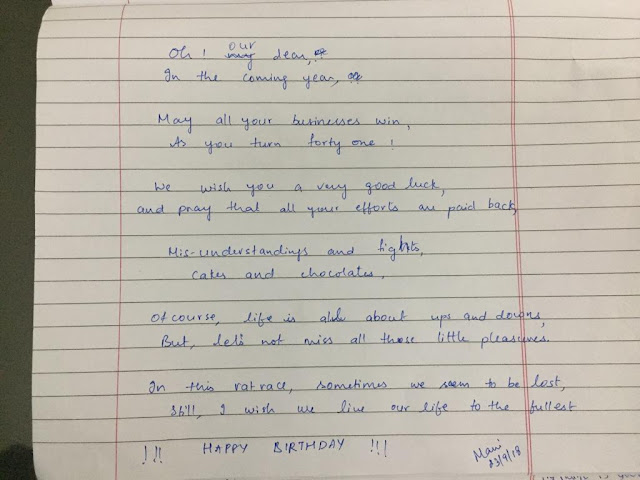 Oh! our dear,
In the coming year,
May all your businesses win,
As you turn forty one!
We wish you a very good luck,
and pray that all your efforts are paid back,
Mis-understandings and fights,
Cakes and chocolates,
Of course, life is all about ups and downs,
But, let's not miss all those little pleasures.
In this rat race, sometimes we seem to be lost,
Still, I wish we live our life to the fullest
!!! HAPPY BIRTHDAY !!!
Mani
23/9/18